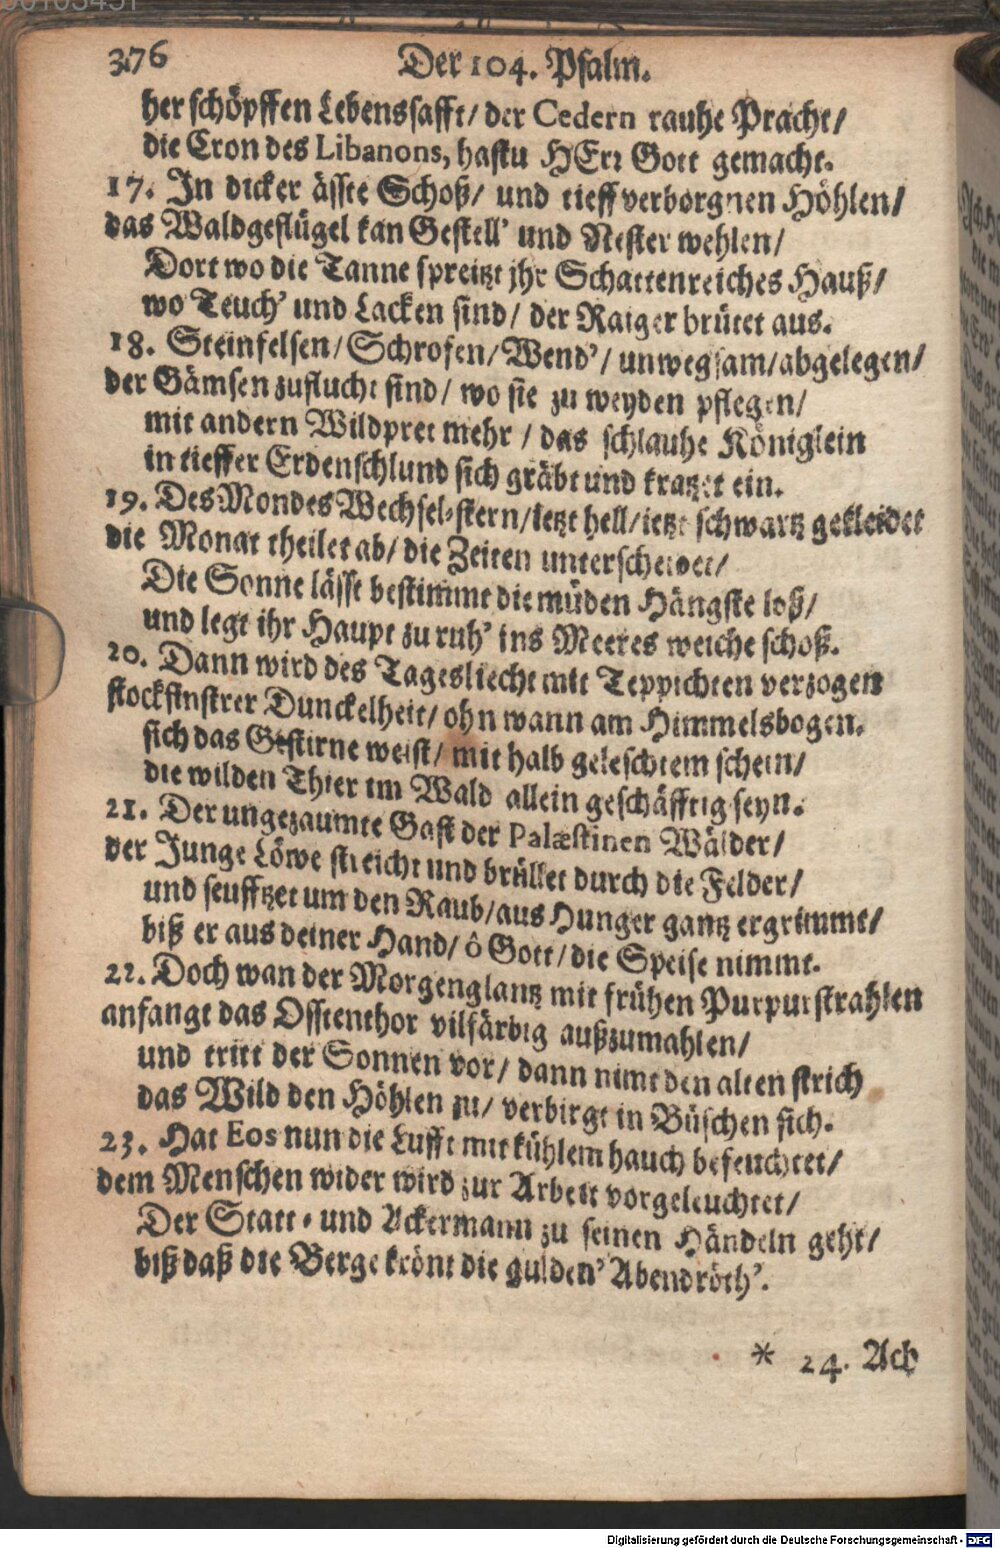 376 Der 104. Psalm.
her schöpffen Lebenssafft/ der Cedern rauhe Pracht/
die Cron des Libanons, hastu HErr Gott gemacht.
17. In dicker ässte Schoß/ und tieff verborgnen Höhlen/
das Waldgeflügel kan Gestell' und Nester wehlen/
Dort wo die Tanne spreitzt jhr Schattenreiches Hauß/
wo Teuch' und Lacken sind/ der Raiger brütet aus.
18. Steinfelsen/ Schrofen/ Wend'/ unwegsam/ abgelegen/
der Gämsen zuflucht sind/ wo sie zu weyden pflegen/
mit andern Wildpret mehr/ das schlauhe Königlein
in tieffer Erdenschlund sich gräbt und kratzet ein.
19. Des Mondes Wechsel-stern/ ietzt hell/ ietzt schwartz gekleidet
die Monat theilet ab/ die Zeiten unterscheidet/
Die Sonne lässt bestimmt die müden Hängste loß/
und legt ihr Haupt zu ruh' ins Meeres weiche schoß.
20. Dann wird des Tagesliecht mit Teppichten verzogen
stockfinstrer Dunckelheit/ ohn wann am Himmelsbogen.
sich das Gestirne weist/ mit halb geleschtem schein/
die wilden Thier im Wald allein geschäfftig seyn.
21. Der ungezaumte Gast der Palæstinen Wälder/
der Junge Löwe streicht und brüllet durch die Felder/
und seufftzet um den Raub/ aus Hunger gantz ergrimmt/
biß er aus deiner Hand/ ô Gott/ die Speise nimmt.
22. Doch wan der Morgenglantz mit frühen Purpurstrahlen
anfangt das Osstenthor vilfärbig außzumahlen/
und tritt der Sonnen vor/ dann nimt den alten strich
das Wild den Höhlen zu/ verbirgt in Büschen sich.
23. Hat Eos nun die Lufft mit kühlem hauch befeuchtet/
dem Menschen wider wird zur Arbeit vorgeleuchtet/
Der Statt- und Ackermann zu seinen Händeln geht/
biß daß die Berge krönt die gulden' Abendröth'.
* 24. Ach
Digitalisierung gefördert durch die Deutsche Forschungsgemeinschaft - DFG